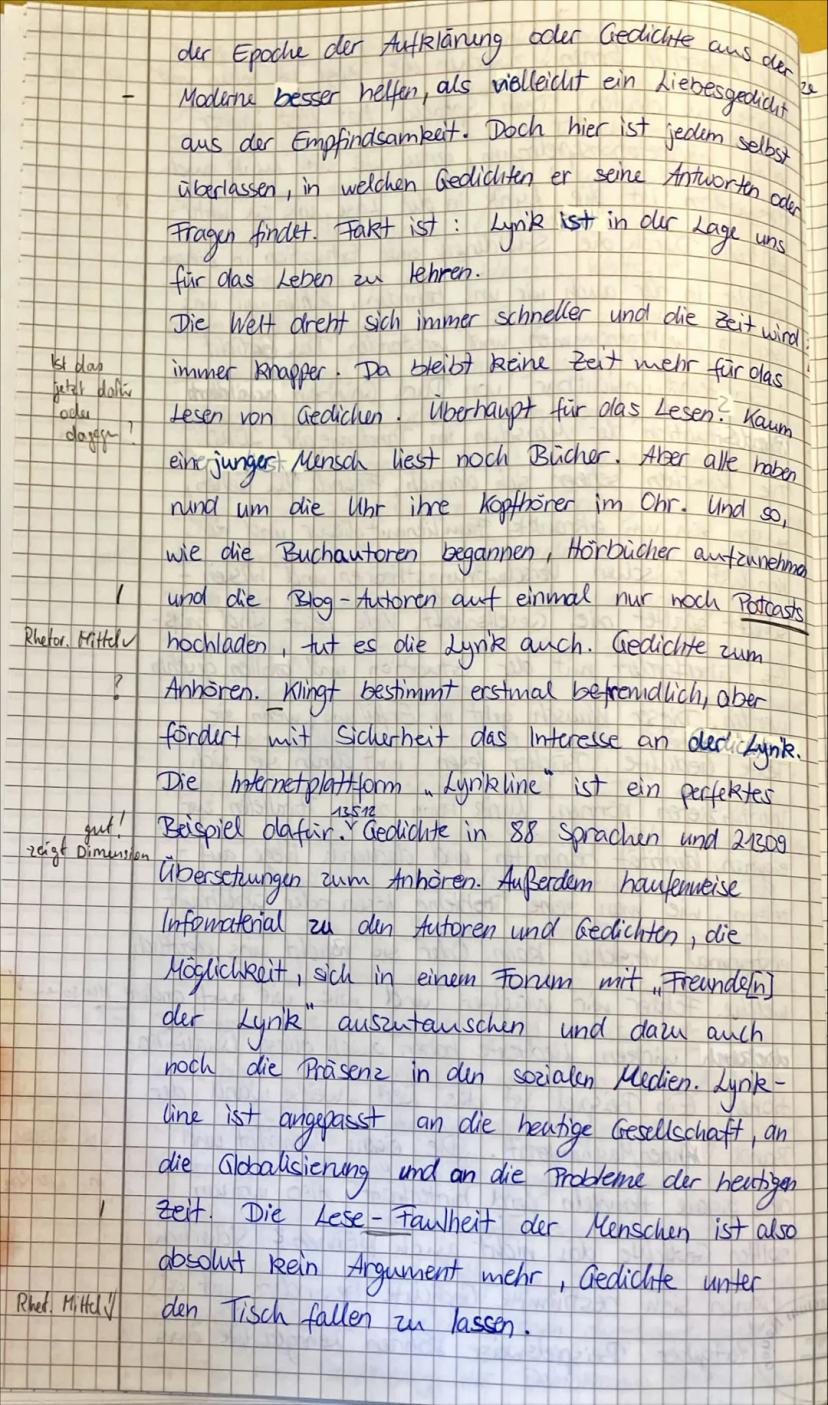 der Epoche der Aufklärung oder Gedichte aus der
– Moderne besser helfen, als vielleicht ein Liebesgedicht
aus der Empfindsamkeit. Doch hier ist jedem selbst
überlassen, in welchen Gedichten er seine Antworten oder
Fragen findet. Fakt ist: Lyrik ist in der Lage uns
für das Leben zu lehren.
Die Welt dreht sich immer schneller und die Zeit wird
Ist das
immer knapper. Da bleibt keine Zeit mehr für das
jetzt dafür
oder
Lesen von Gedichen. Überhaupt für das Lesen? Kaum
dagegen?
ein junger Mensch liest noch Bücher. Aber alle haben
rund um die Uhr ihre Kopfhörer im Ohr. Und so,
wie die Buchautoren begannen, Hörbücher aufzunehmen
I und die Blog-Autoren auf einmal nur noch Potcasts
Rhetor. Mittel ✓ hochladen, tut es die Lyrik auch. Gedichte zum
? Anhören. Klingt bestimmt erstmal befremdlich, aber
fördert mit Sicherheit das Interesse an der Lyrik.
Die Internetplattform „Lyrikline“ ist ein perfektes
13512
gut! Beispiel dafür. Gedichte in 88 Sprachen und 21309
zeigt Dimension
Übersetzungen zum Anhören. Außerdem haufenweise
Infomaterial zu den Autoren und Gedichten, die
Möglichkeit, sich in einem Forum mit „Freunde[n]
der Lyrik“ auszutauschen und dazu auch
noch die Präsenz in den sozialen Medien. Lyrik-
line ist angepasst an die heutige Gesellschaft, an
die Globalisierung und an die Probleme der heutigen
I Zeit. Die Lese-Faulheit der Menschen ist also
absolut kein Argument mehr, Gedichte unter
Rhet. Mittel ✓ den Tisch fallen zu lassen.